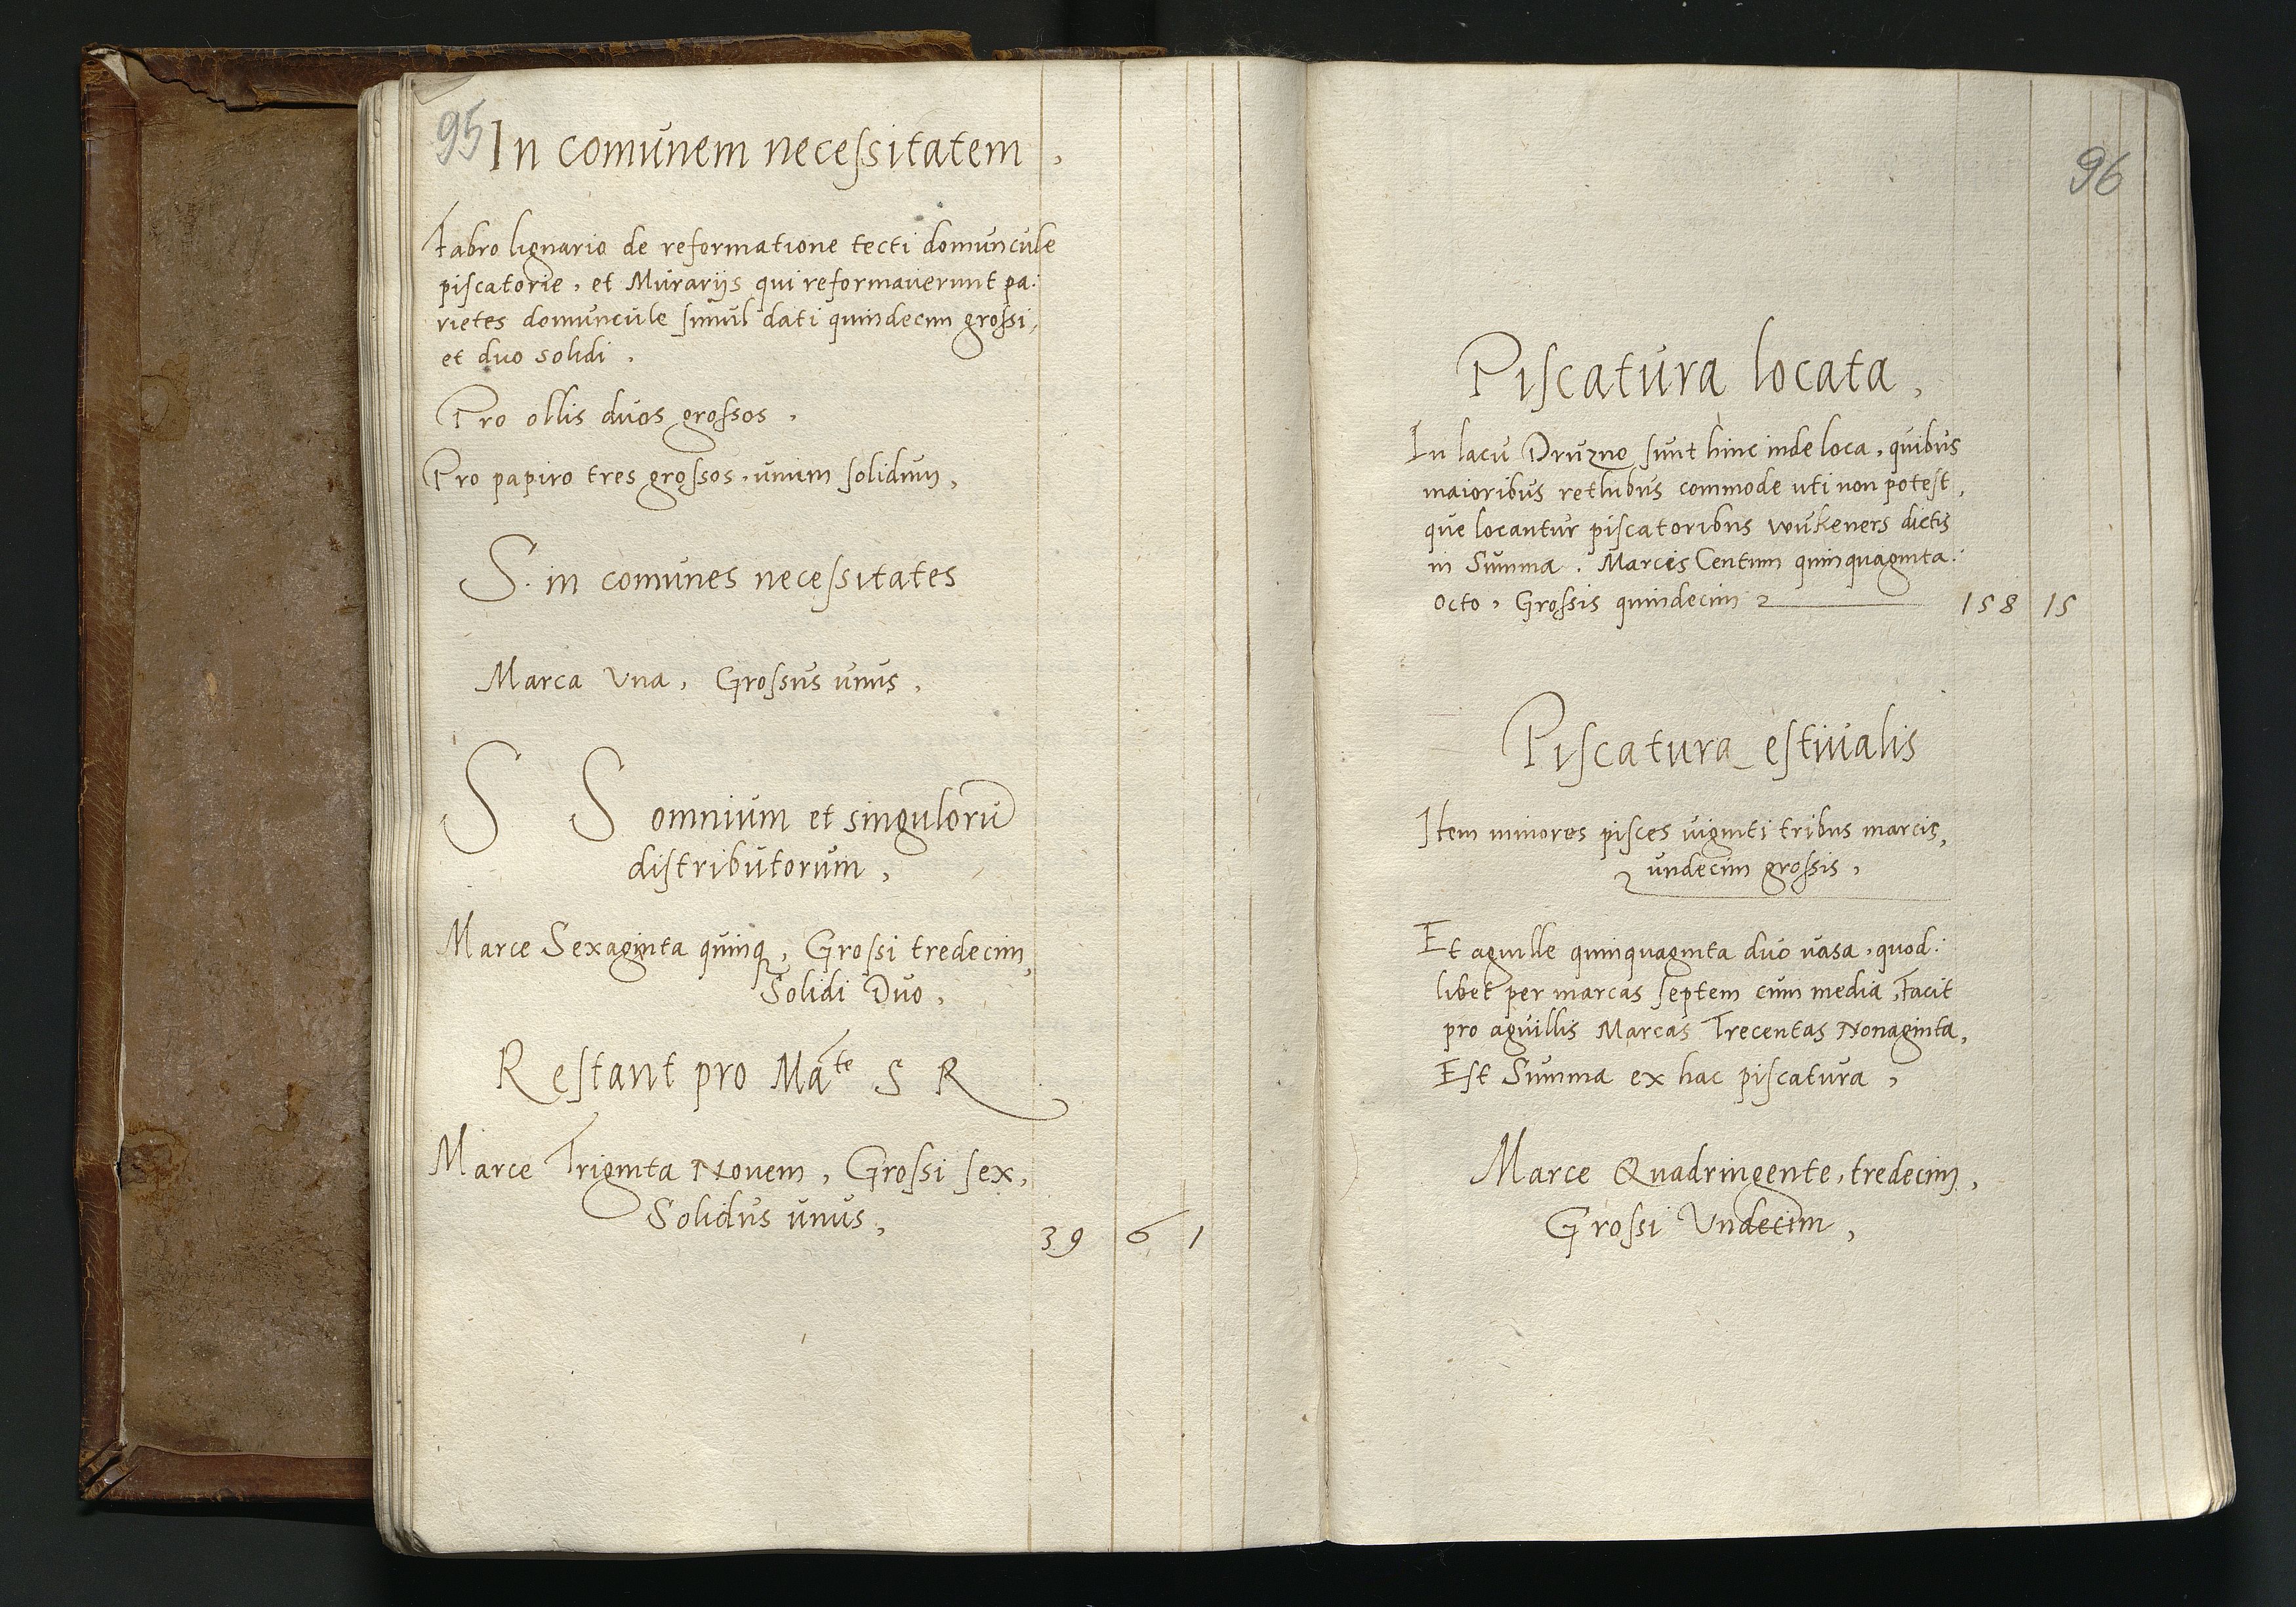 95
In comunem necessitatem,
Fabro lignario de reformatione tecti domuncule
piscatorie, et Murarijs qui reformauerunt pa:
rietes domuncule simul dati quindecim grossi,
et duo solidi.
Pro ollis duos grossos,
Pro papiro tres grossos, unum solidum,
S. in comunes necessitates
Marca Vna, Grossus unus,
S S omnium et singulorũ
distributorum,
Marce Sexaginta quinq, Grossi tredecim,
Solidi Duo,
Restant pro Mate S R
Marce Triginta Nouem, Grossi sex,
Solidus unus, 39 6 1
96
Piscatura locata,
In lacu Druzno sunt hinc inde loca, quibus
maioribus rethibus commode uti non potest,
que locantur piscatoribus wukeners dictis
in Summa. Marcis Centum quinquaginta:
octo, Grossis quindecim 158 15
Piscatura estiualis
Item minores pisces uiginti tribus marcis,
undecim grossis,
Et aguille quinquaginta duo uasa, quod:
libet per marcas septem cum media, Facit
pro aguillis Marcas Trecentas Nonaginta,
Est Summa ex hac piscatura,
Marce Quadringente, tredecim,
Grossi Undecim,